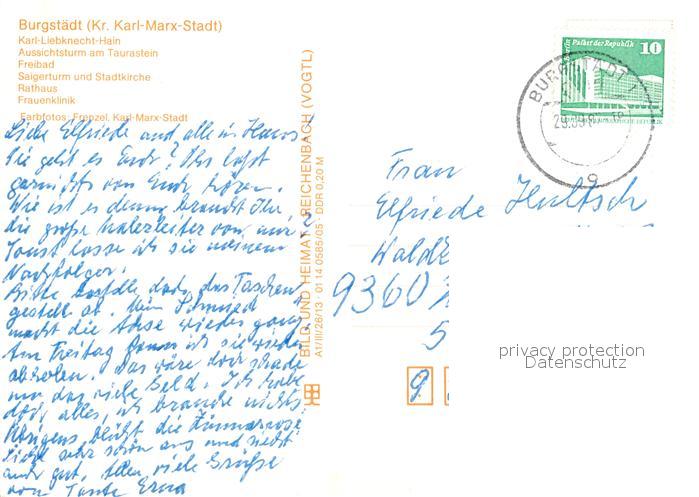 Burgstädt (Kr. Karl-Marx-Stadt)
Karl-Liebknecht-Hain
Aussichtsturm am Taurastein
Freibad
Saigerturm und Stadtkirche
Rathaus
Frauenklinik
Farbfotos: Frenzel, Karl-Marx-Stadt
Liebe Elfriede und alle im Haus!
Wie geht es Euch? Ihr laßt
garnichts von Euch hören.
Wie ist es denn, braucht Ihr
die große Malerleiter von mir,
sonst lasse ich sie meinem
Nachfolger.
Bitte bestelle doch das
Mein Schmied
macht die Achse wieder ganz
Am Freitag kann ich sie wieder
abholen. Das wäre doch schade
um das viele Geld. Ich habe
doch alles, ich brauche nichts.
Übrigens blüht die Zimmerrose
sehr schön aus und riecht
auch gut. Allen viele Grüße
von Tante Erna
BILD UND HEIMAT REICHENBACH (VOGTL)
A1/III/26/13 · 01 14 0585/05 · DDR 0,20 M
Berlin, Palast der Republik
10
BURGSTÄDT 1
Frau
Elfriede Hultsch
9360
5
9
privacy protection
Datenschutz